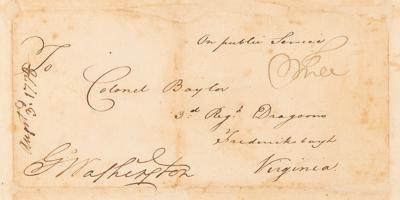 On public Service
Free
To
Colonel Baylor
3.d Reg.t Dragoons
Fredericksburgh
Virginia
G:o Washington